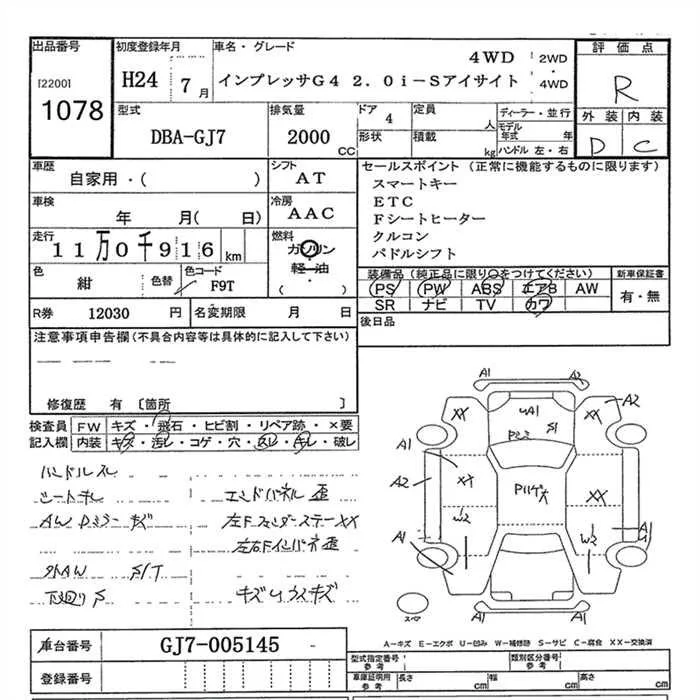 出品番号 初度登録年月 車名・グレード 評価点
[2200] H24 7月 4WD 2WD・4WD
インプレッサG4 2.0i-Sアイサイト R
1078 型式 排気量 ドア 4 定員 人 ディーラー・並行 外装 内装
DBA-GJ7 2000CC 形状 積載 kg モデル年式 年 D C
ハンドル 左・右
車歴 シフト セールスポイント(正常に機能するものに限ります)
自家用・( ) AT スマートキー
車検 冷房 ETC
年 月( 日) AAC Fシートヒーター
走行 燃料 クルコン
11万0千916km ガソリン パドルシフト
軽・油
( )
色 紺 色替 色コード F9T 装備品(純正品に限り○をつけてください) 新車保証書
PS PW ABS エアB AW 有・無
SR ナビ TV カワ
R券 12030円 名変期限 月 日 後日品
注意事項申告欄(不具合内容等は具体的に記入して下さい)
修復歴 有 〔箇所 〕
検査員記入欄 FW キズ・飛石・ヒビ割・リペア跡・×要
内装 キズ・汚レ・コゲ・穴・スレ・キレ・破レ
ハンドルスレ
シートキレ エンドパネル歪
AW Dミラーキズ 左FフェンダーステーXX
左右Fインパネ歪
外AW S/T
下廻りS キズUウスキズ
A1 A2
XX UA1 S1 A2
A1
A2 XX XX
W2 W2 A1
A1
スペア A1 A2
A-キズ E-エクボ U-凹み W-補修跡 S-サビ C-腐食 XX-交換済
車台番号 GJ7-005145 型式指定番号 参考 類別区分番号 参考
登録番号 車庫証明用 参考 長さ cm 幅 cm 高さ cm